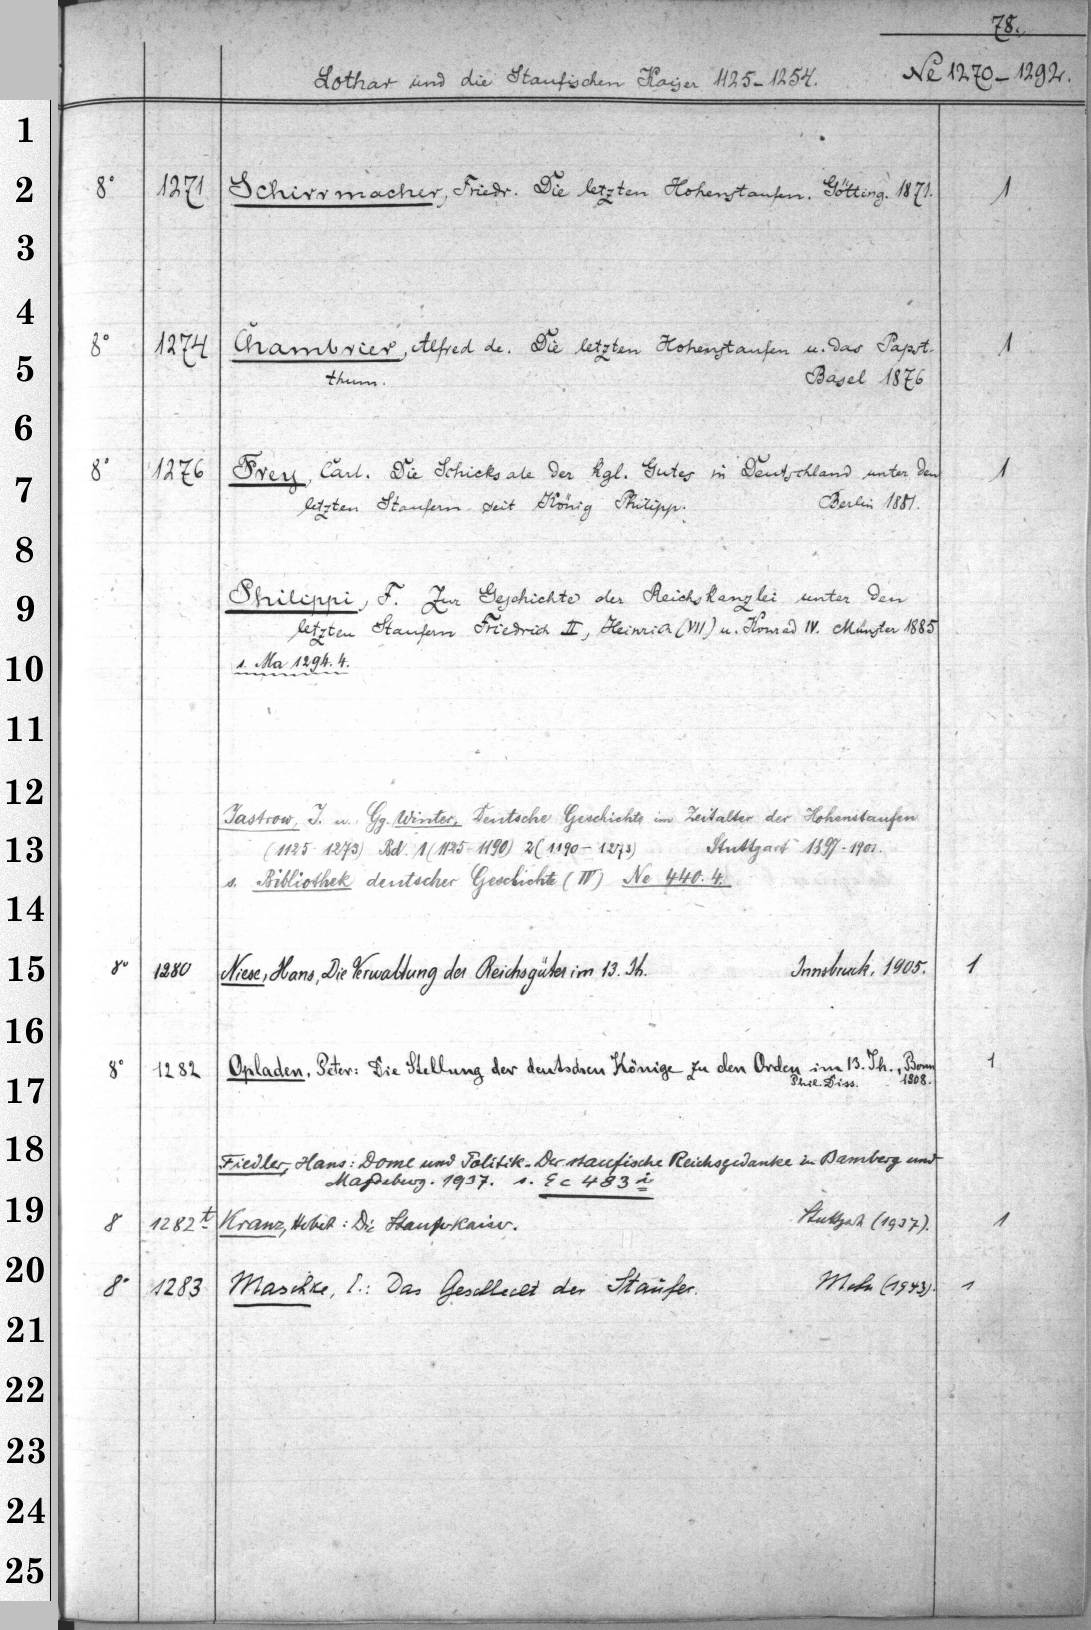 78.
Lothar und die Staufischen Kaiser 1125-1254. Ne 1270-1292.
1
2 8° 1271 Schirrmacher, Friedr. Die letzten Hohenstaufen. Götting. 1871. 1
3
4
8° 1274 Chambrier, Alfred de. Die letzten Hohenstaufen u. das Papst- 1
5 thum. Basel 1876
6
8° 1276 Frey, Carl. Die Schicksale der kgl. Gutes in Deutschland unter den 1
7 letzten Staufern seit König Philipp. Berlin 1881.
8
9 Philippi, F. Zur Geschichte der Reichskanzlei unter den
letzten Staufern Friedrich II, Heinrich (VII) u. Konrad IV. Münster 1885
10 s. Ma 1294.4.
11
12
Jastrow, J. u. Gg. Winter, Deutsche Geschichte im Zeitalter der Hohenstaufen
13 (1125-1273) Bd. 1 (1125-1190) 2 (1190-1273) Stuttgart 1897-1901.
s. Bibliothek deutscher Geschichte (IV) Ne 440.4.
14
15 8° 1280 Niese, Hans, Die Verwaltung der Reichsgüter im 13. Jh. Innsbruck, 1905. 1
16
8° 1282 Opladen, Peter: Die Stellung der deutschen Könige zu den Orden im 13. Jh., Bonn 1
17 Phil. Diss. 1908.
18 Fiedler, Hans: Dome und Politik. Der staufische Reichsgedanke in Bamberg und
Magdeburg. 1937. s. Ec 483 i
19 8 1282 t Kranz, Herbert: Die Stauferkaiser. Stuttgart (1937). 1
20 8° 1283 Maschke, E.: Das Geschlecht der Staufer. (1943). 1
21
22
23
24
25